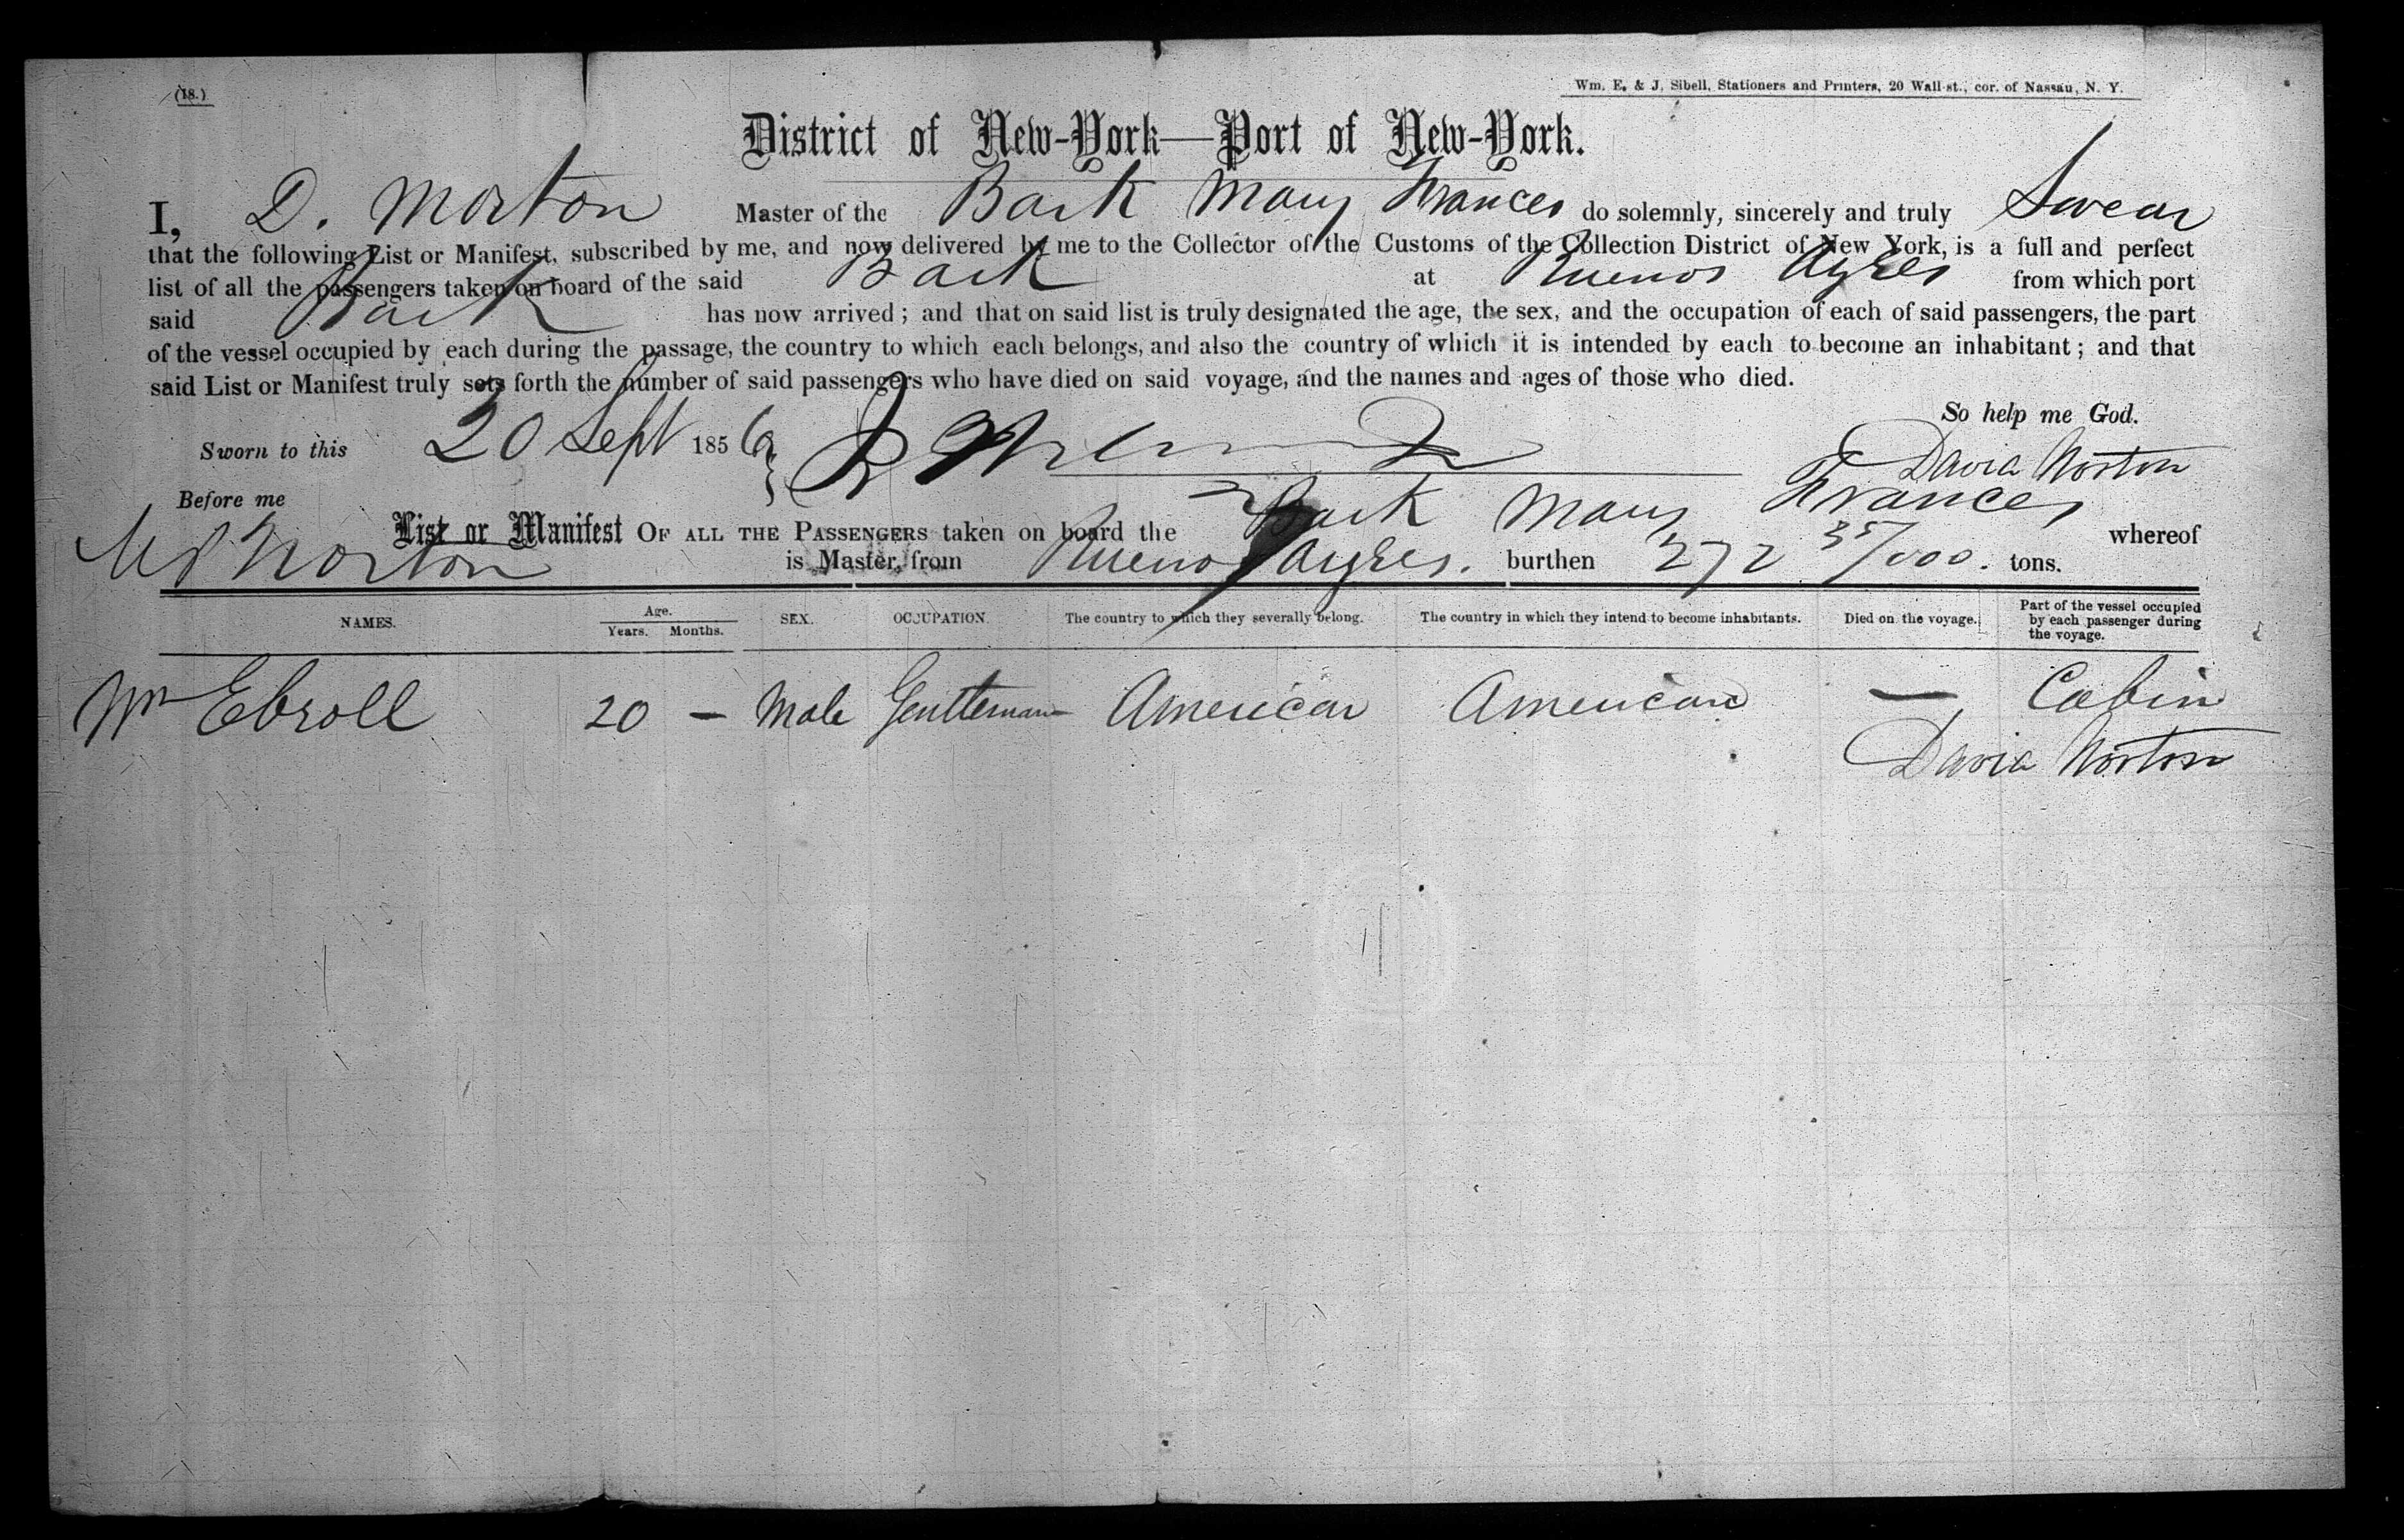 (18.)
Wm. E. & J. Sibell, Stationers and Printers, 20 Wall-st., cor. of Nassau, N. Y.
District of New-York—Port of New-York.
I, D. Morton Master of the Bark Mary Frances do solemnly, sincerely and truly Swear
that the following List or Manifest, subscribed by me, and now delivered by me to the Collector of the Customs of the Collection District of New York, is a full and perfect
list of all the passengers taken on board of the said Bark at Buenos Ayres from which port
said Bark has now arrived; and that on said list is truly designated the age, the sex, and the occupation of each of said passengers, the part
of the vessel occupied by each during the passage, the country to which each belongs, and also the country of which it is intended by each to become an inhabitant; and that
said List or Manifest truly sets forth the number of said passengers who have died on said voyage, and the names and ages of those who died.
So help me God.
Sworn to this 20 Sept 1856
David Norton
Before me
List or Manifest OF ALL THE PASSENGERS taken on board the Bark Mary Frances whereof
Norton is Master, from Buenos Ayres. burthen 272 35/000. tons.
NAMES. Age. Years. Months. SEX. OCCUPATION. The country to which they severally belong. The country in which they intend to become inhabitants. Died on the voyage. Part of the vessel occupied by each passenger during the voyage.
Wm Ebroll 20 — Male Gentleman American American — Cabin
David Norton